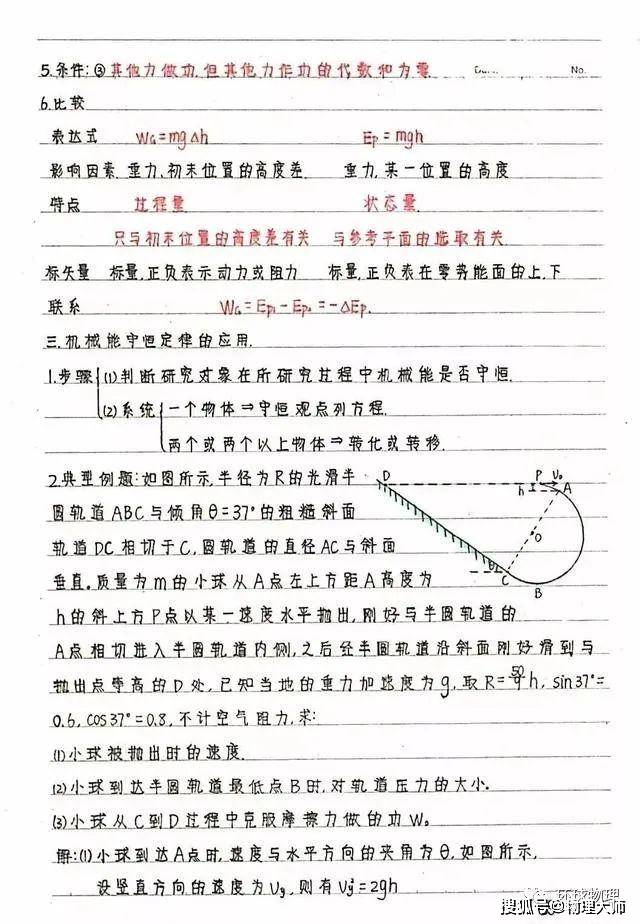 5.条件:③其他力做功.但其他力作功的代数和为零 No.
6.比较
表达式 WG=mgΔh Ep=mgh
影响因素.重力、初末位置的高度差. 重力,某一位置的高度
特点 过程量 状态量.
只与初末位置的高度差有关 与参考平面的选取有关.
标矢量 标量,正负表示动力或阻力 标量,正负表在零势能面的上.下
联系 WG=Ep₁-Ep₂=-ΔEp.
三.机械能守恒定律的应用.
1.步骤{(1)判断研究对象在所研究过程中机械能是否守恒.
(2)系统{一个物体⇒守恒观点列方程.
两个或两个以上物体⇒转化或转移.
2.典型例题:如图所示,半径为R的光滑半
D P v₀ h A
圆轨道ABC与倾角θ=37°的粗糙斜面
轨道DC相切于C,圆轨道的直径AC与斜面
O
θ C B
垂直。质量为m的小球从A点左上方距A高度为
h的斜上方P点以某一速度水平抛出,刚好与半圆轨道的
A点相切进入半圆轨道内侧,之后经半圆轨道沿斜面刚好滑到与
抛出点等高的D处,已知当地的重力加速度为g,取R=50/9h, sin37°=
0.6, cos37°=0.8,不计空气阻力,求:
(1)小球被抛出时的速度.
(2)小球到达半圆轨道最低点B时,对轨道压力的大小.
(3)小球从C到D过程中克服摩擦力做的功W。
解:(1)小球到达A点时,速度与水平方向的夹角为θ,如图所示,
设竖直方向的速度为υy,则有υy²=2gh
环球物理
搜狐号@物理大师